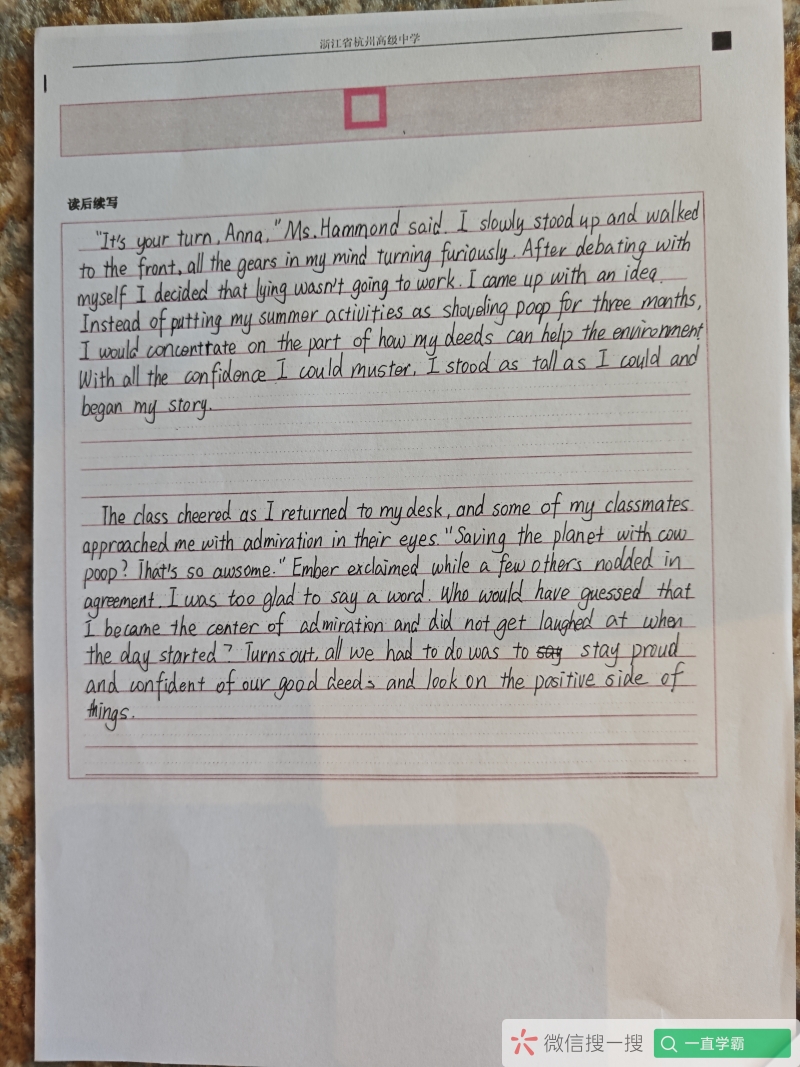 浙江省杭州高级中学
读后续写
"It's your turn, Anna," Ms. Hammond said. I slowly stood up and walked
to the front, all the gears in my mind turning furiously. After debating with
myself I decided that lying wasn't going to work. I came up with an idea.
Instead of putting my summer activities as shoveling poop for three months,
I would concentrate on the part of how my deeds can help the environment
With all the confidence I could muster, I stood as tall as I could and
began my story.
The class cheered as I returned to my desk, and some of my classmates
approached me with admiration in their eyes. "Saving the planet with cow
poop? That's so awsome." Ember exclaimed while a few others nodded in
agreement. I was too glad to say a word. Who would have guessed that
I became the center of admiration and did not get laughed at when
the day started? Turns out, all we had to do was to say stay proud
and confident of our good deeds and look on the positive side of
things.
微信搜一搜
一直学霸